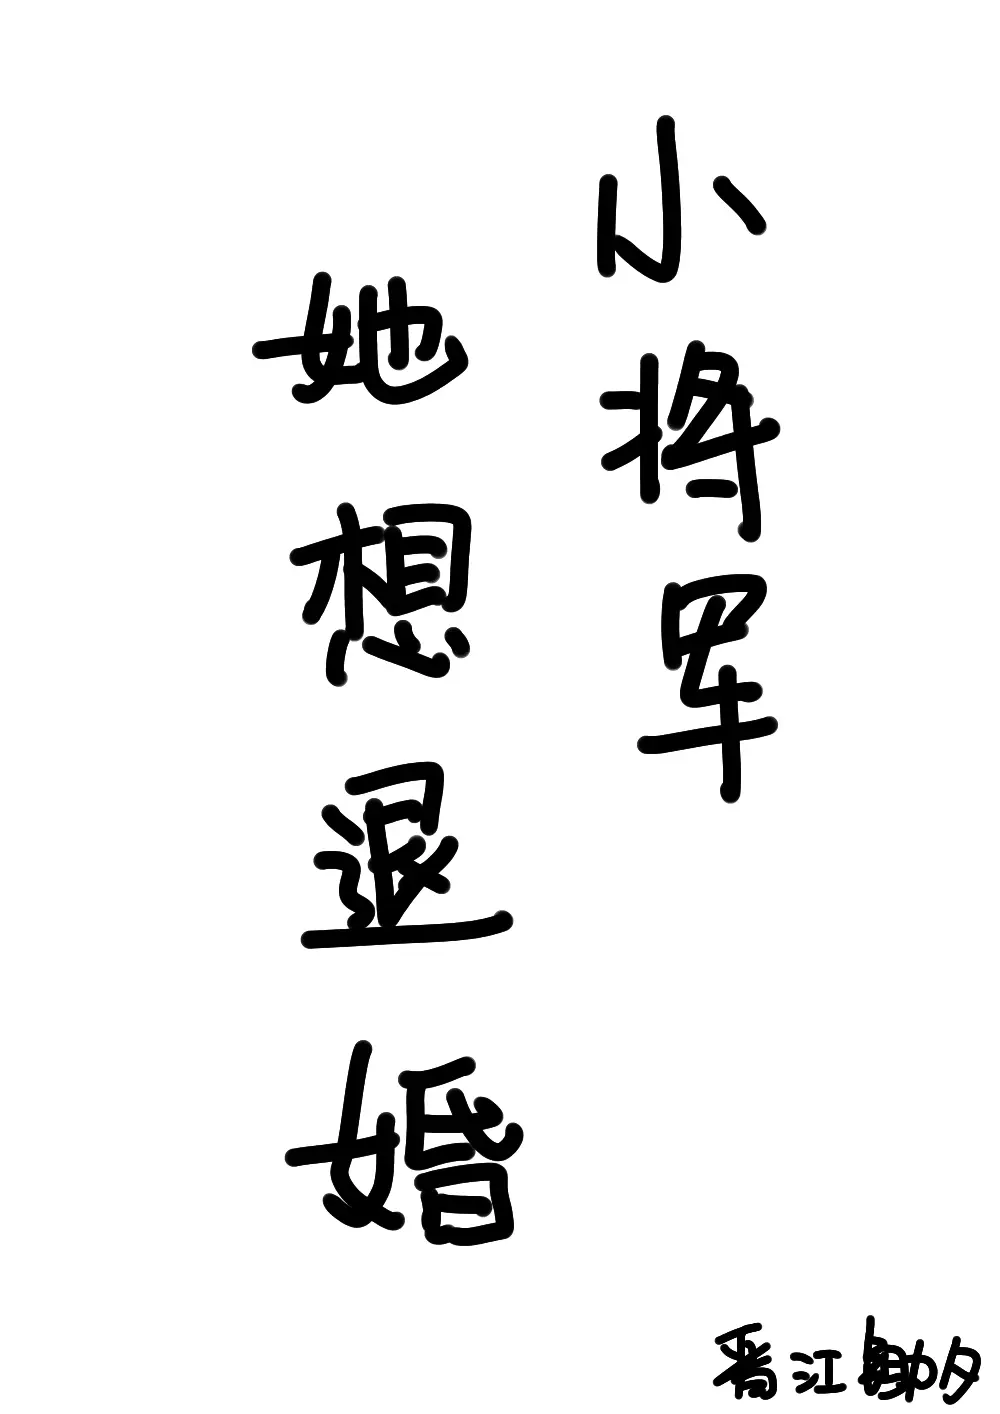 小将军
她想退婚
晋江 勘夕